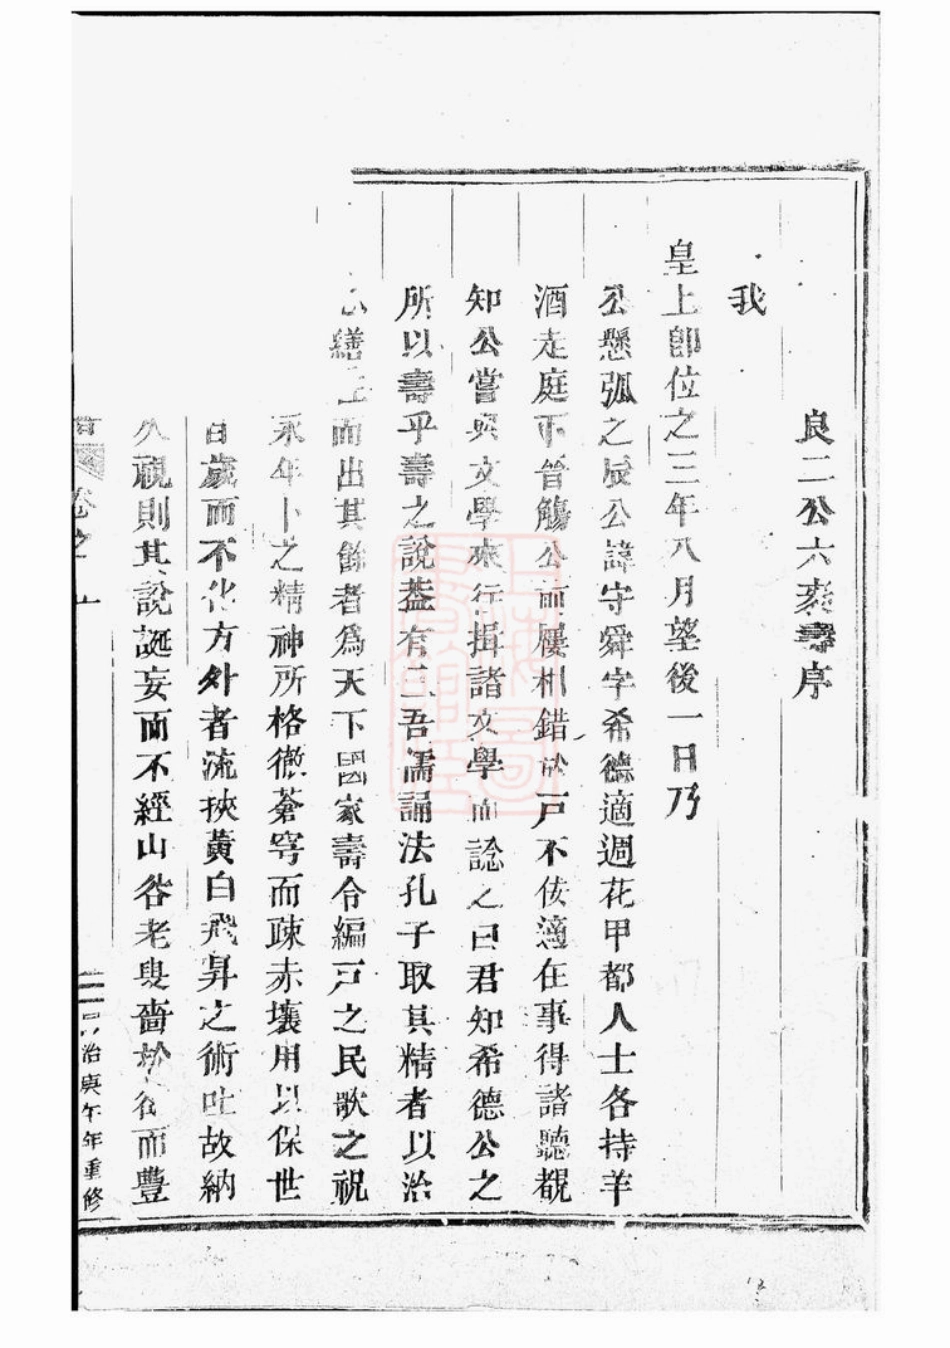 良二公六袠壽序
我
皇上卽位之三年八月望後一日乃
公懸弧之辰公諱守舜字希德適週花甲都人士各持羊
酒走庭下晉觴公而屨相錯於戶不佞適在事得諸聽覩
知公嘗與文學來行揖諸文學而諗之曰君知希德公之
所以壽乎壽之說蓋有三吾儒誦法孔子取其精者以治
心繕生而出其餘者爲天下國家壽令編戸之民歌之祝
永年卜之精神所格徹蒼穹而疎赤壤用以保世
百歲而不化方外者流挾黃白飛昇之術吐故納
久視則其說誕妄而不經山谷老叟嗇於德而豐
卷之
治庚午年重修